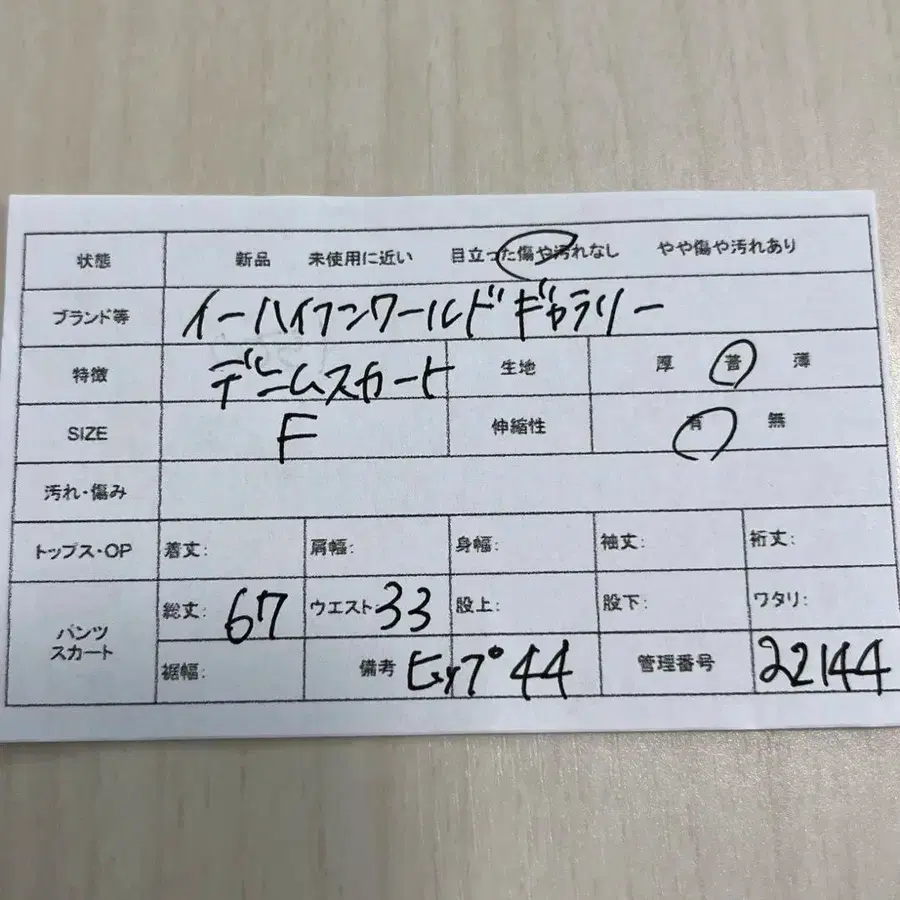 状態 新品 未使用に近い 目立った傷や汚れなし やや傷や汚れあり
ブランド等 イーハイフンワールドギャラリー
特徴 デニムスカート 生地 厚 普 薄
SIZE F 伸縮性 有 無
汚れ・傷み
トップス・OP 着丈: 肩幅: 身幅: 袖丈: 裄丈:
パンツ スカート 総丈: 67 ウエスト 33 股上: 股下: ワタリ:
裾幅: 備考 ヒップ44 管理番号 22144